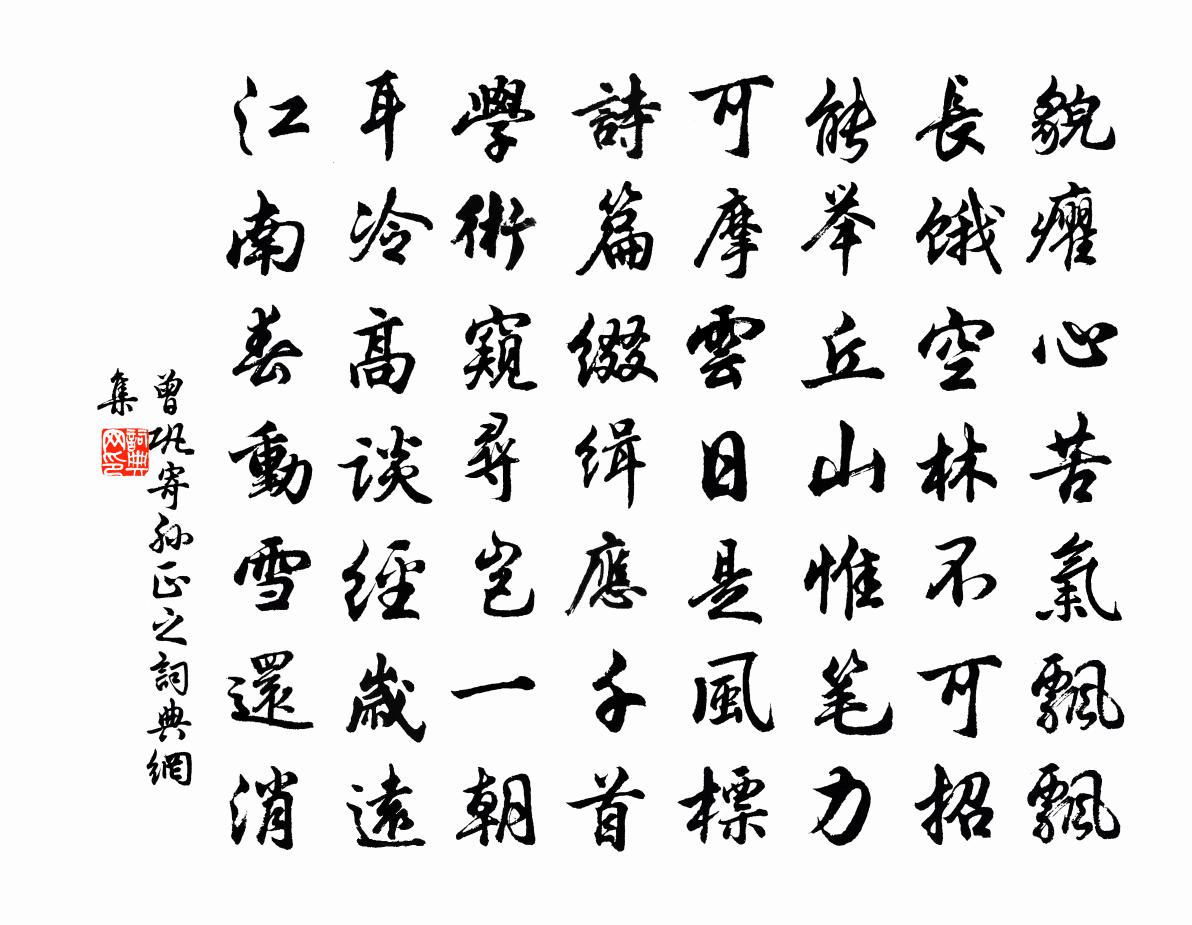 貌癯心苦氣飄飄
長餓空林不可招
能举丘山惟笔力
可摩雲日是風標
詩篇綴緝應千首
學術窺尋豈一朝
耳冷高談經歲遠
江南春動雪還消
曾巩寄孙正之詞典網
集
詞典网印